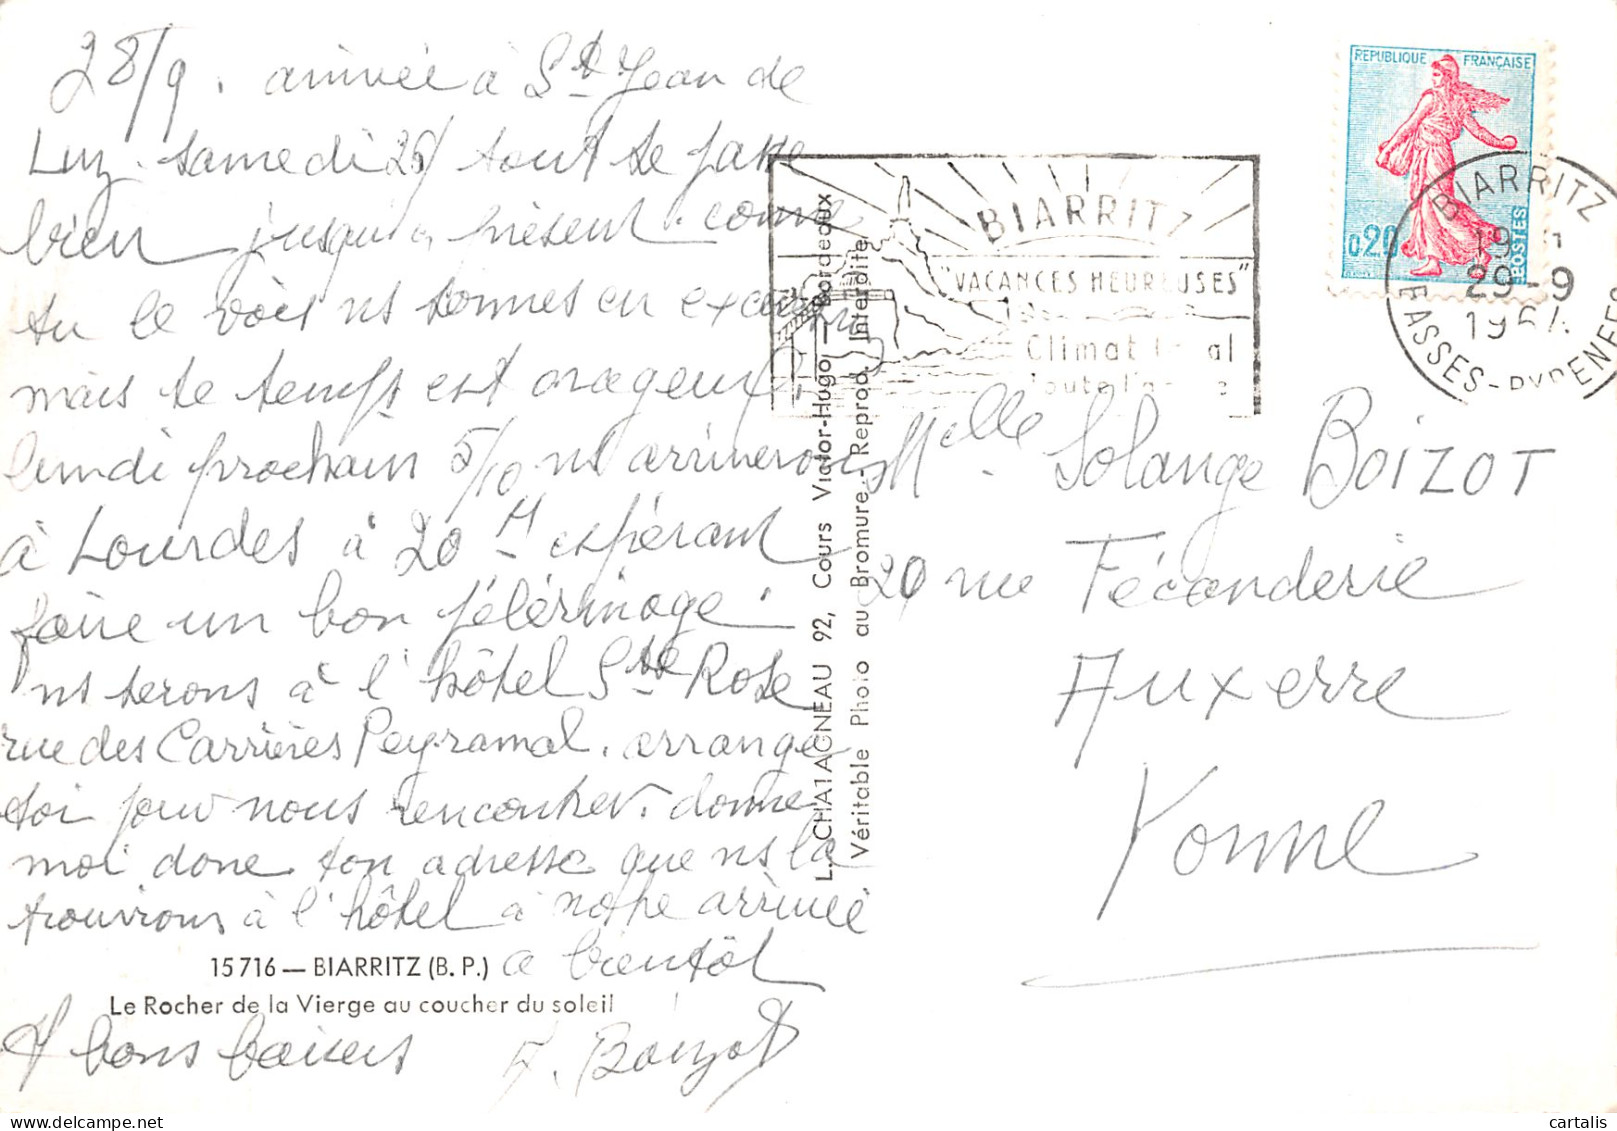 28/9. arrivée à St Jean de
Luz samedi 26/ tout se passe
bien jusqu'à présent. comme
tu le vois ns sommes en excursion
mais le temps est orageux.
lundi prochain 5/10 ns arriverons
à Lourdes à 20 H espérant
faire un bon pélérinage.
ns serons à l'hôtel Ste Rose
rue des Carrières Peyramal. arrange
toi pour nous rencontrer. donne
moi donc ton adresse que ns la
trouvions à l'hôtel à notre arrivée
à bientôt
bons baisers
F. Boizot
15716 — BIARRITZ (B. P.)
Le Rocher de la Vierge au coucher du soleil
L. CHATAGNEAU 92, Cours Victor-Hugo — Bordeaux
Véritable Photo au Bromure - Reprod. Interdite
BIARRITZ
"VACANCES HEUREUSES"
Climat
REPUBLIQUE FRANÇAISE
0,20
POSTES
BIARRITZ
29-9
1964
BASSES-PYRENEES
Melle Solange BOIZOT
29 rue Fécanderie
Auxerre
Yonne
cartalis
www.delcampe.net